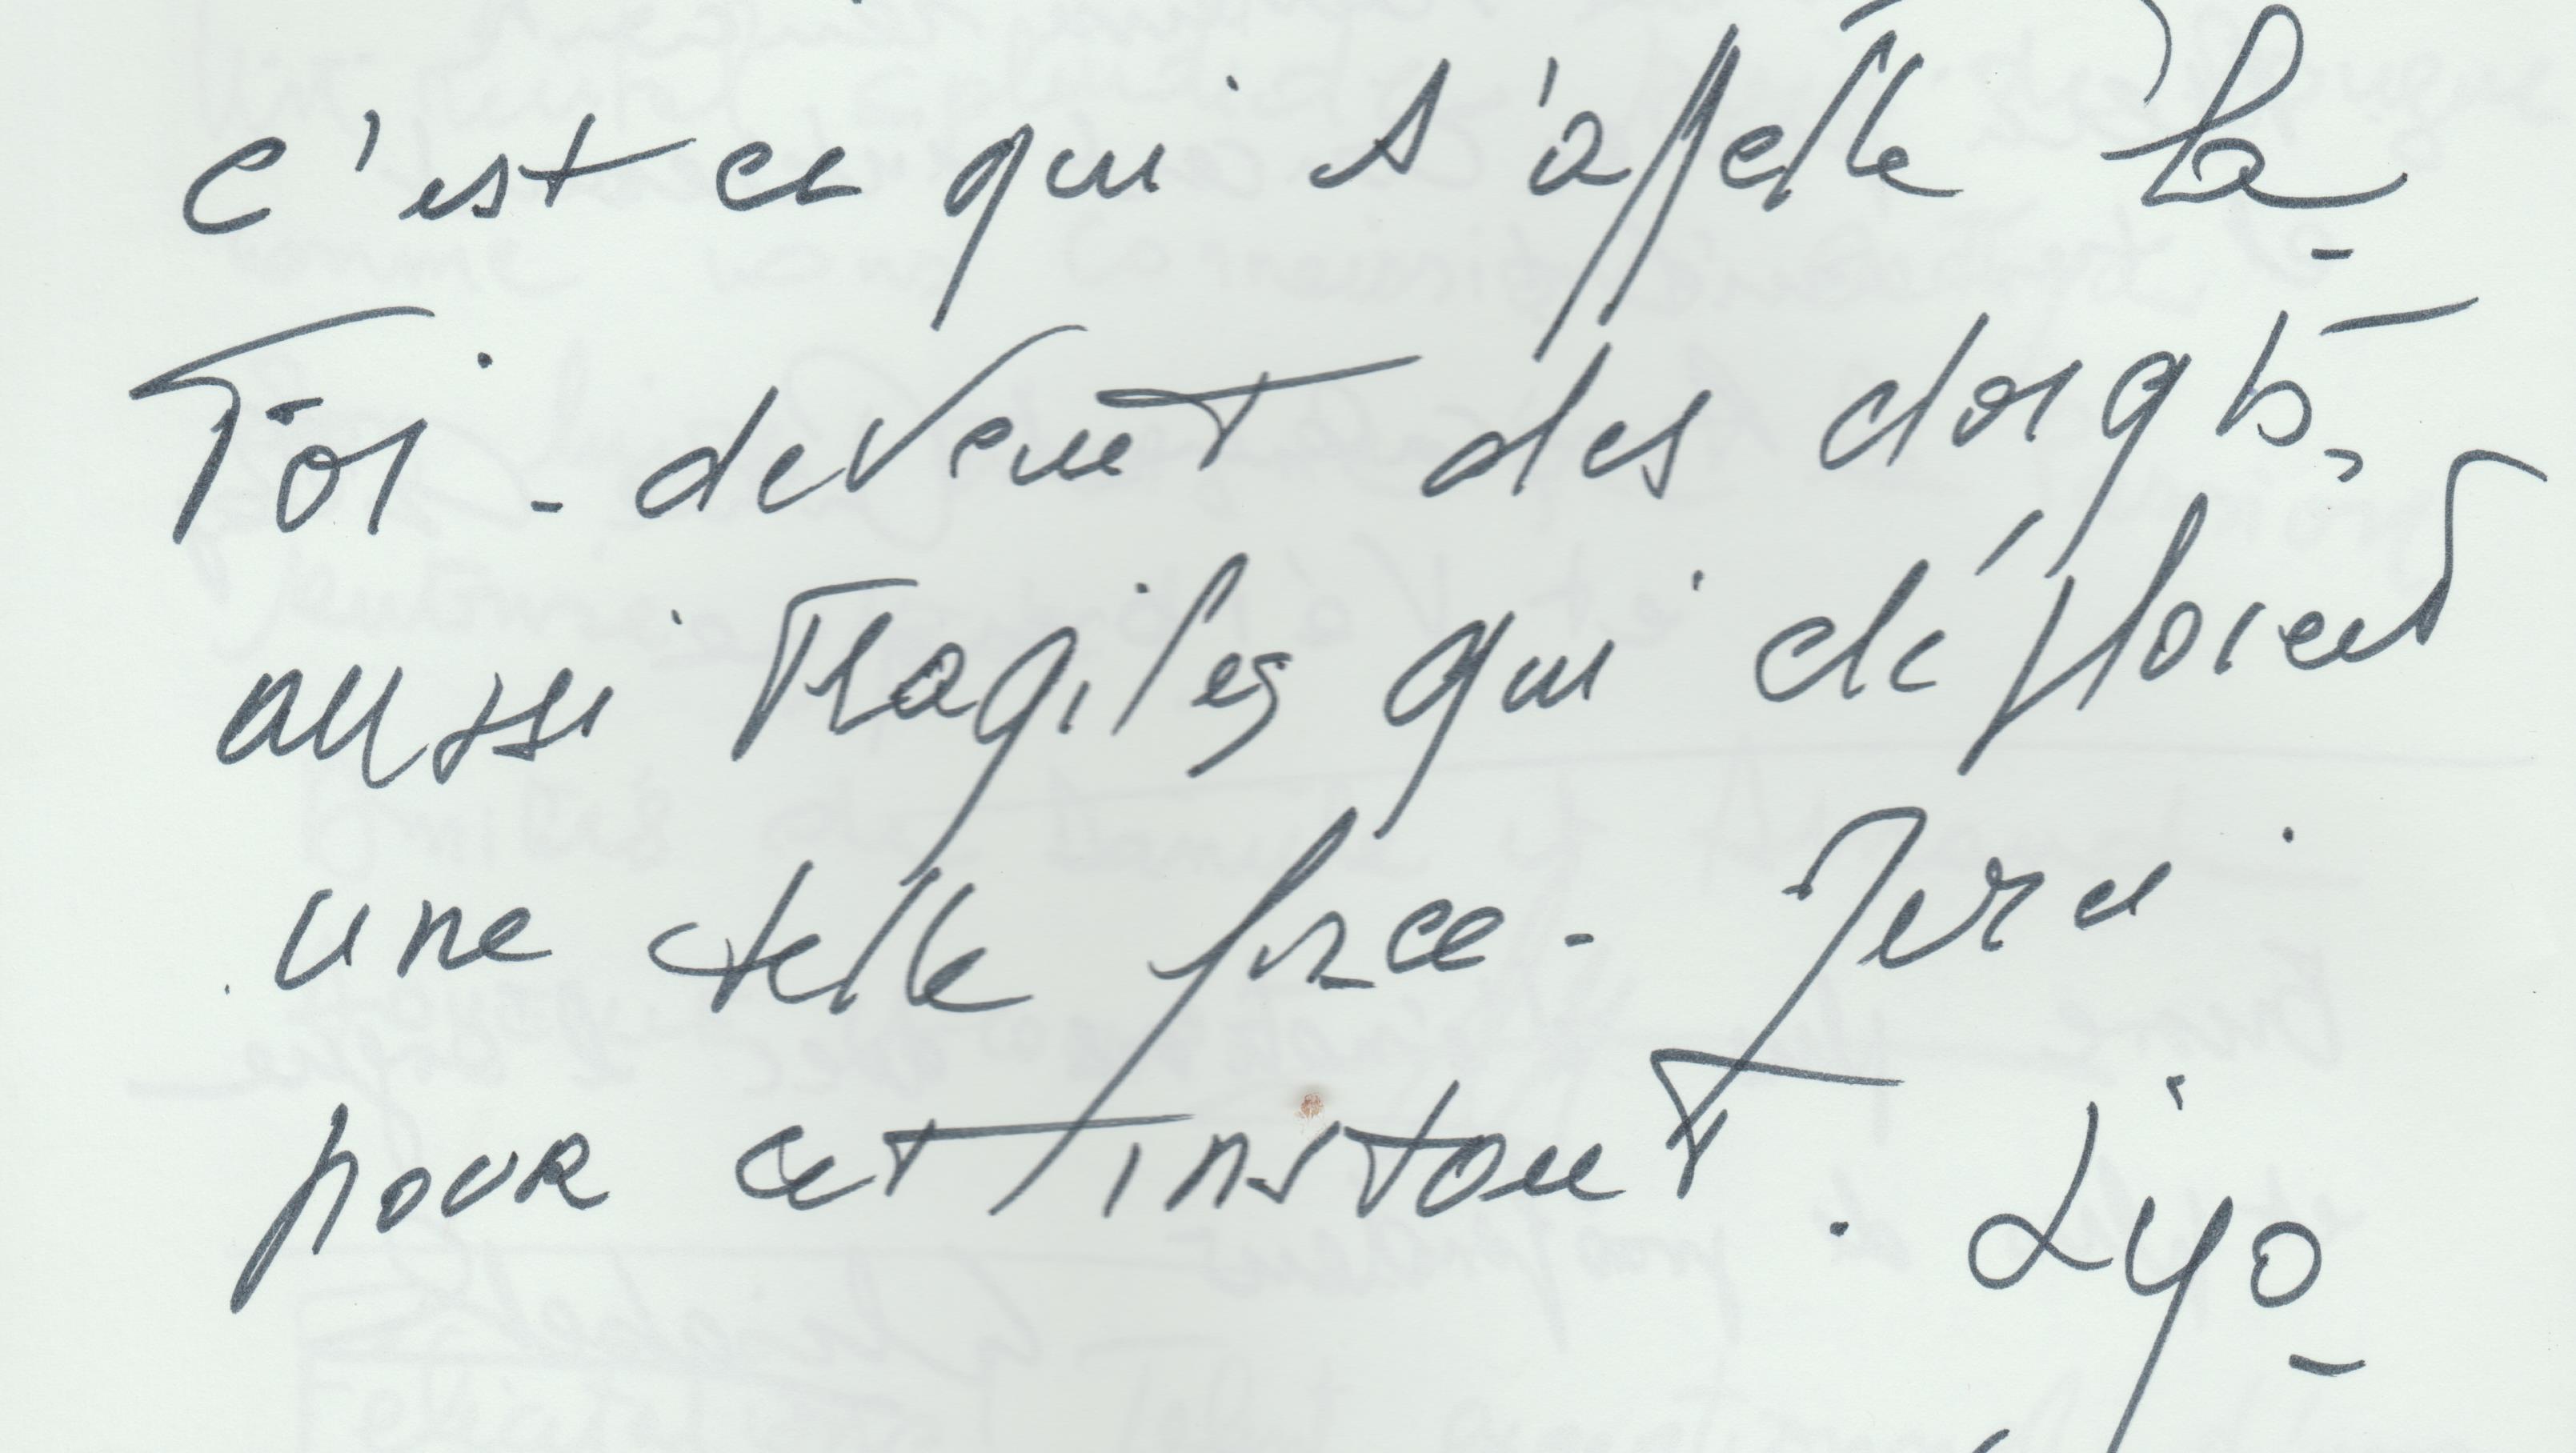 c'est ce qui s'appelle la
Foi - devant des doigts,
aussi fragiles qui déploient
une telle force. Merci
pour cet instant. Lyo